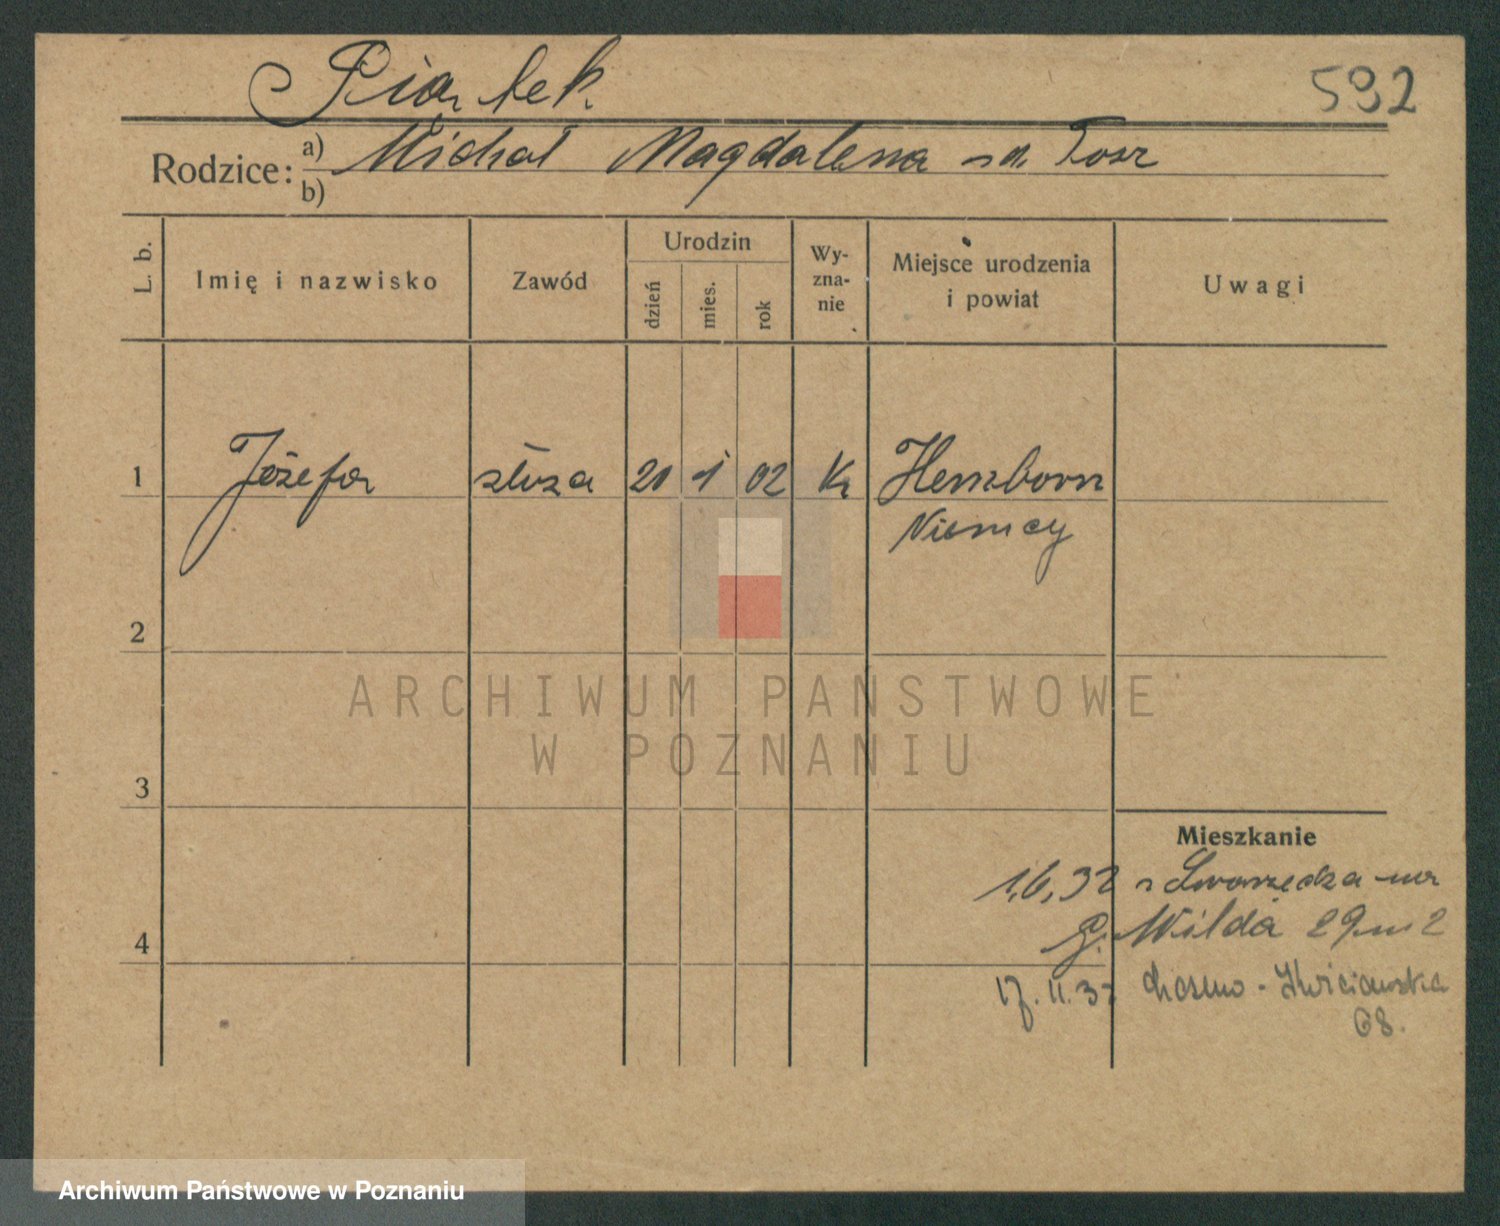 Piątek
592
Rodzice: a) Michał Magdalena
b)
L. b.
Imię i nazwisko
Zawód
Urodzin
dzień
mies.
rok
Wy-
zna-
nie
Miejsce urodzenia
i powiat
Uwagi
1 Józefa służa 20 1 02 Kr
Niemcy
2
ARCHIWUM PAŃSTWOWE
W POZNANIU
3
Mieszkanie
1,6,32
G. Wilda 29 m 2
4
17. 11. 37
68.
Archiwum Państwowe w Poznaniu